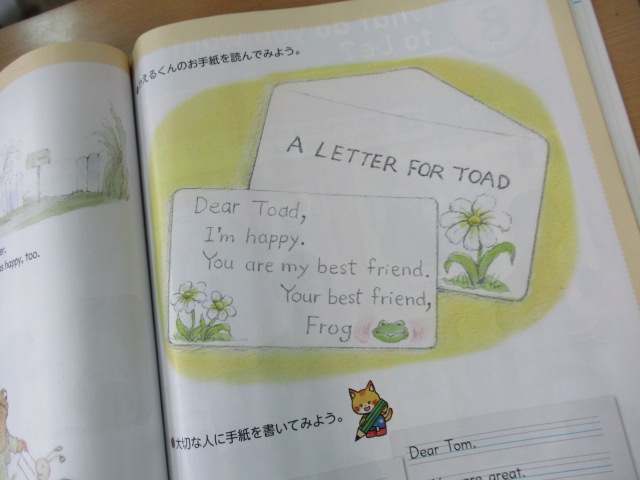 えるくんのお手紙を読んでみよう。
A LETTER FOR TOAD
Dear Toad,
I'm happy.
You are my best friend.
Your best friend,
Frog
happy, too.
大切な人に手紙を書いてみよう。
Dear Tom.
are great.